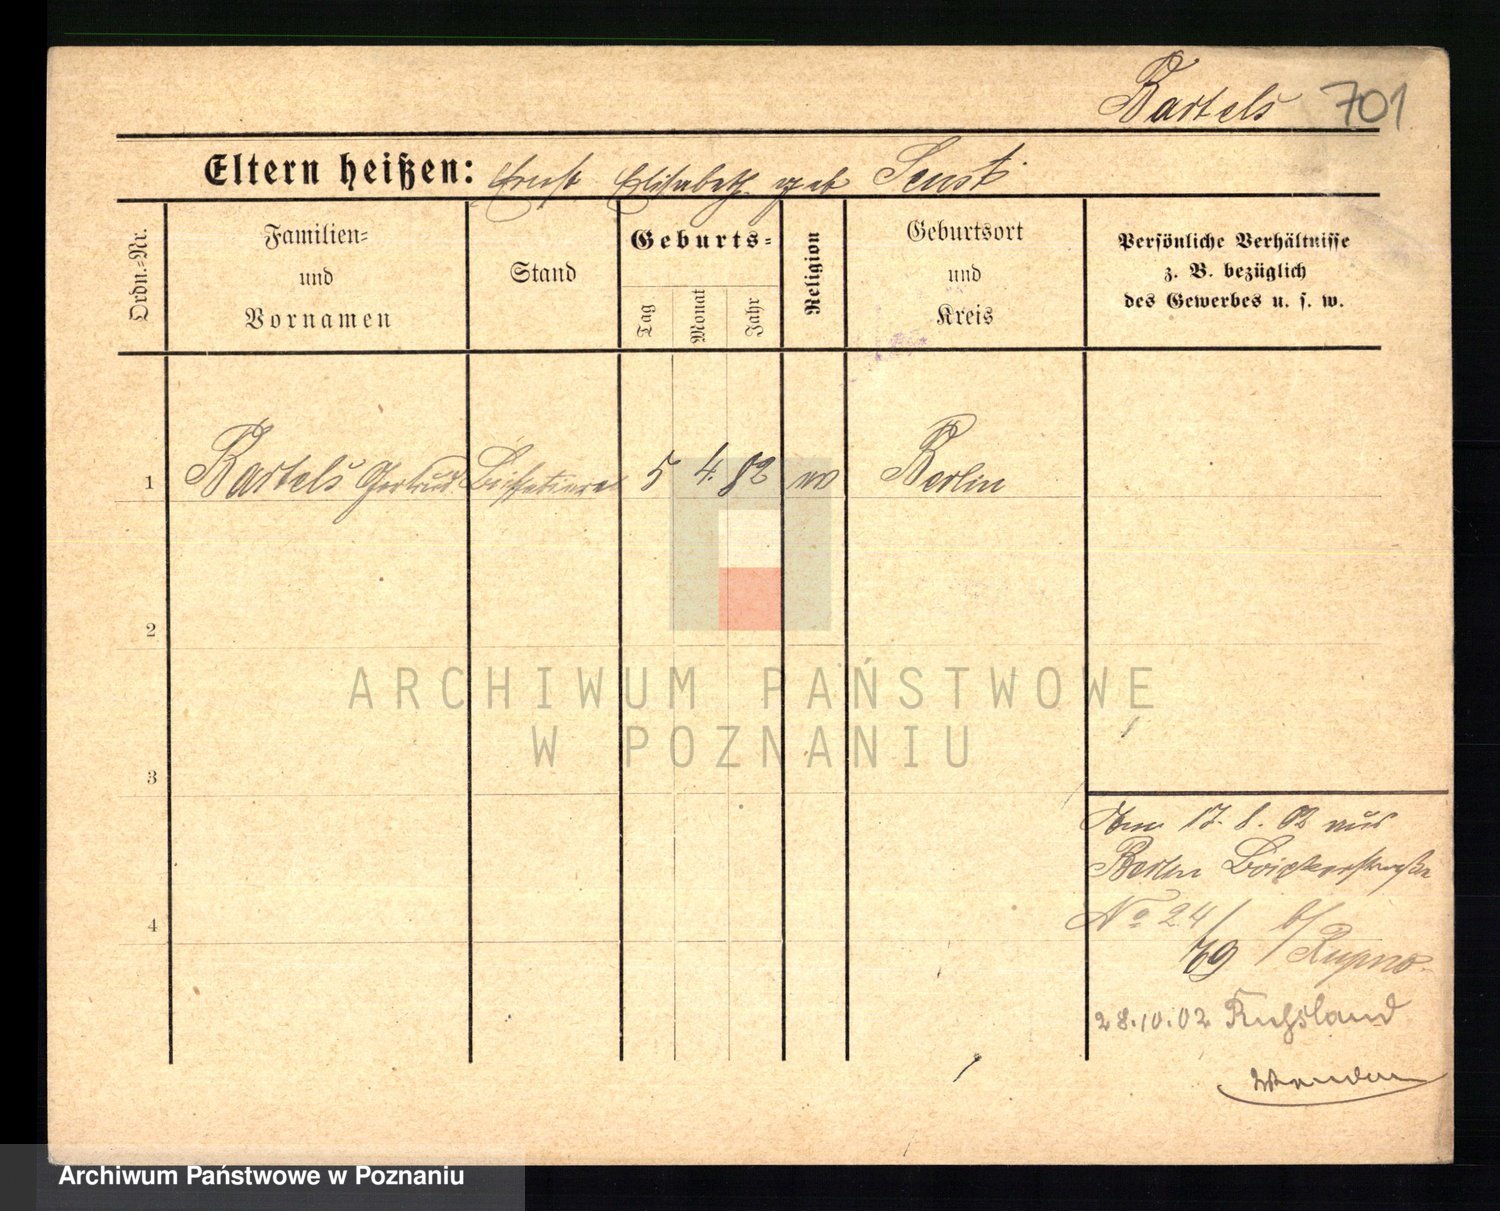 Bartels 701
Eltern heißen: Ernst Elisabeth geb
Ordn.-Nr.
Familien-
und
Vornamen
Stand
Geburts-
Tag
Monat
Jahr
Religion
Geburtsort
und
Kreis
Persönliche Verhältnisse
z. B. bezüglich
des Gewerbes u. s. w.
1 Bartels Gertrud 5 4. 82 Berlin
2
3
4
ARCHIWUM PAŃSTWOWE
W POZNANIU
17. 8. 02 aus
Berlin
No 24/
79
28.10.02 Rußland
Archiwum Państwowe w Poznaniu